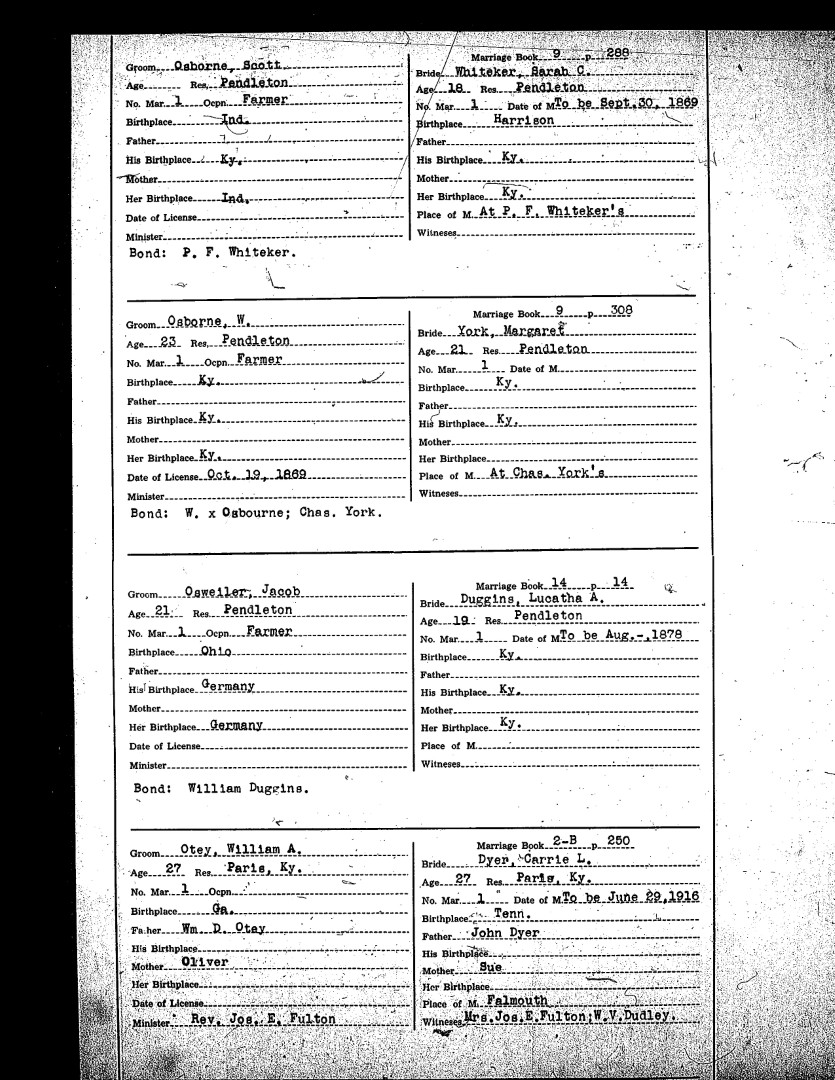 Groom Osborne, Scott
Age Res. Pendleton
No. Mar. 1 Ocpn. Farmer
Birthplace Ind.
Father
His Birthplace Ky.
Mother
Her Birthplace Ind.
Date of License
Minister
Bond: P. F. Whiteker.
Marriage Book 9 p. 288
Bride Whiteker, Sarah C.
Age 18 Res. Pendleton
No. Mar. 1 Date of M. To be Sept. 30, 1869
Birthplace Harrison
Father
His Birthplace Ky.
Mother
Her Birthplace Ky.
Place of M. At P. F. Whiteker's
Witneses
Groom Osborne, W.
Age 23 Res. Pendleton
No. Mar. 1 Ocpn. Farmer
Birthplace Ky.
Father
His Birthplace Ky.
Mother
Her Birthplace Ky.
Date of License Oct. 19, 1869
Minister
Bond: W. x Osbourne; Chas. York.
Marriage Book 9 p. 308
Bride York, Margaret
Age 21 Res. Pendleton
No. Mar. 1 Date of M.
Birthplace Ky.
Father
His Birthplace Ky.
Mother
Her Birthplace
Place of M. At Chas. York's
Witneses
Groom Osweiler, Jacob
Age 21 Res. Pendleton
No. Mar. 1 Ocpn. Farmer
Birthplace Ohio
Father
His Birthplace Germany
Mother
Her Birthplace Germany
Date of License
Minister
Bond: William Duggins.
Marriage Book 14 p. 14
Bride Duggins, Lucatha A.
Age 19 Res. Pendleton
No. Mar. 1 Date of M. To be Aug.-, 1878
Birthplace Ky.
Father
His Birthplace Ky.
Mother
Her Birthplace Ky.
Place of M.
Witneses
Groom Otey, William A.
Age 27 Res. Paris, Ky.
No. Mar. 1 Ocpn.
Birthplace Ga.
Father Wm. D. Otey
His Birthplace
Mother Oliver
Her Birthplace
Date of License
Minister Rev. Jos. E. Fulton
Marriage Book 2-B p. 250
Bride Dyer, Carrie L.
Age 27 Res. Paris, Ky.
No. Mar. 1 Date of M. To be June 29, 1916
Birthplace Tenn.
Father John Dyer
His Birthplace
Mother Sue
Her Birthplace
Place of M. Falmouth
Witneses Mrs. Jos. E. Fulton; W. V. Dudley.